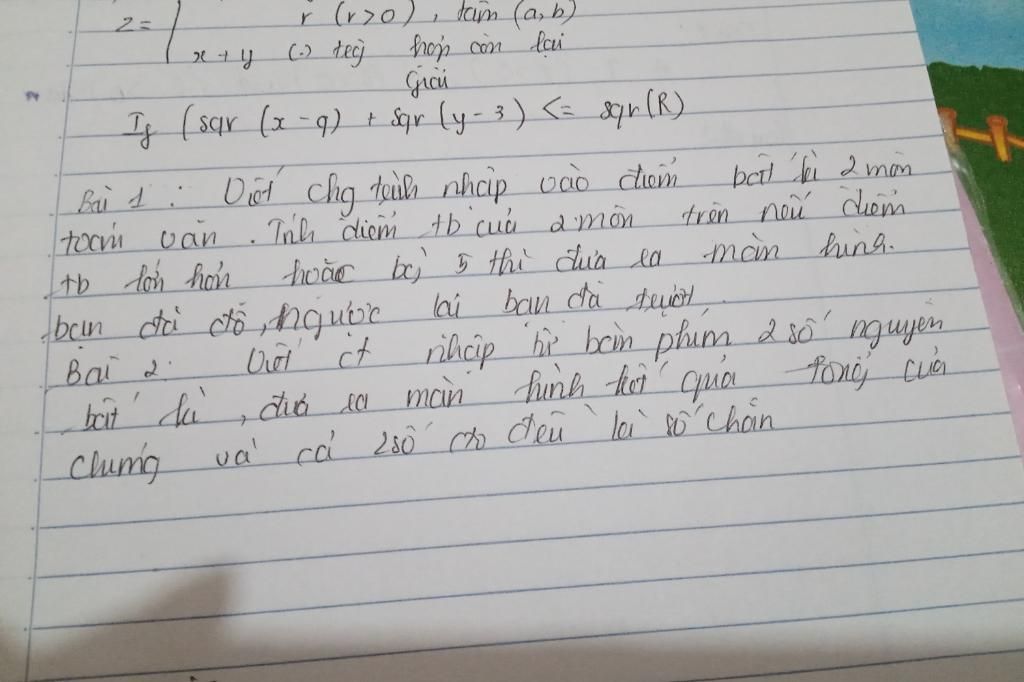 z = { r (r>0), tâm (a,b)
x + y (.) trg hợp còn lại
Giải
If (sqr (x-a) + sqr (y-3) <= sqr (R)
Bài 1 : Viết chg trình nhập vào điểm bất kì 2 môn
toán văn. Tính điểm tb của 2 môn trên nếu điểm
tb lớn hơn hoặc bg 5 thì đưa ra màn hình.
bạn đã đỗ, ngược lại bạn đã trượt.
Bài 2: Viết ct nhập từ bàn phím 2 số nguyên
bất kì, đưa ra màn hình kết quả tổng của
chúng và cả 2 số đó đều là số chẵn